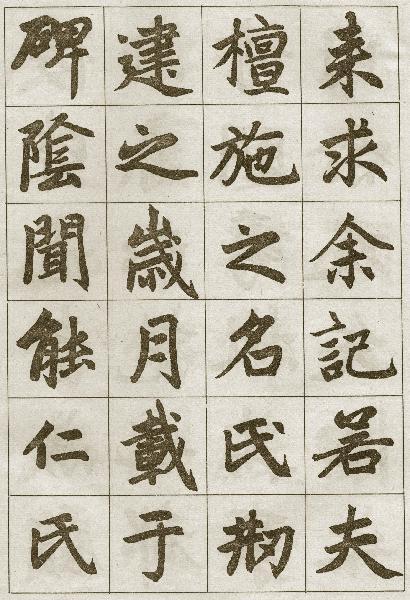 来求余記若夫
檀施之名氏刱
建之歲月載于
碑陰聞能仁氏